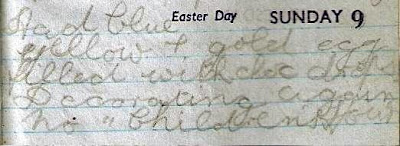 Had blue Easter Day SUNDAY 9
yellow & gold egg
filled with choc drops
Decorating again
No "Childrens Hour